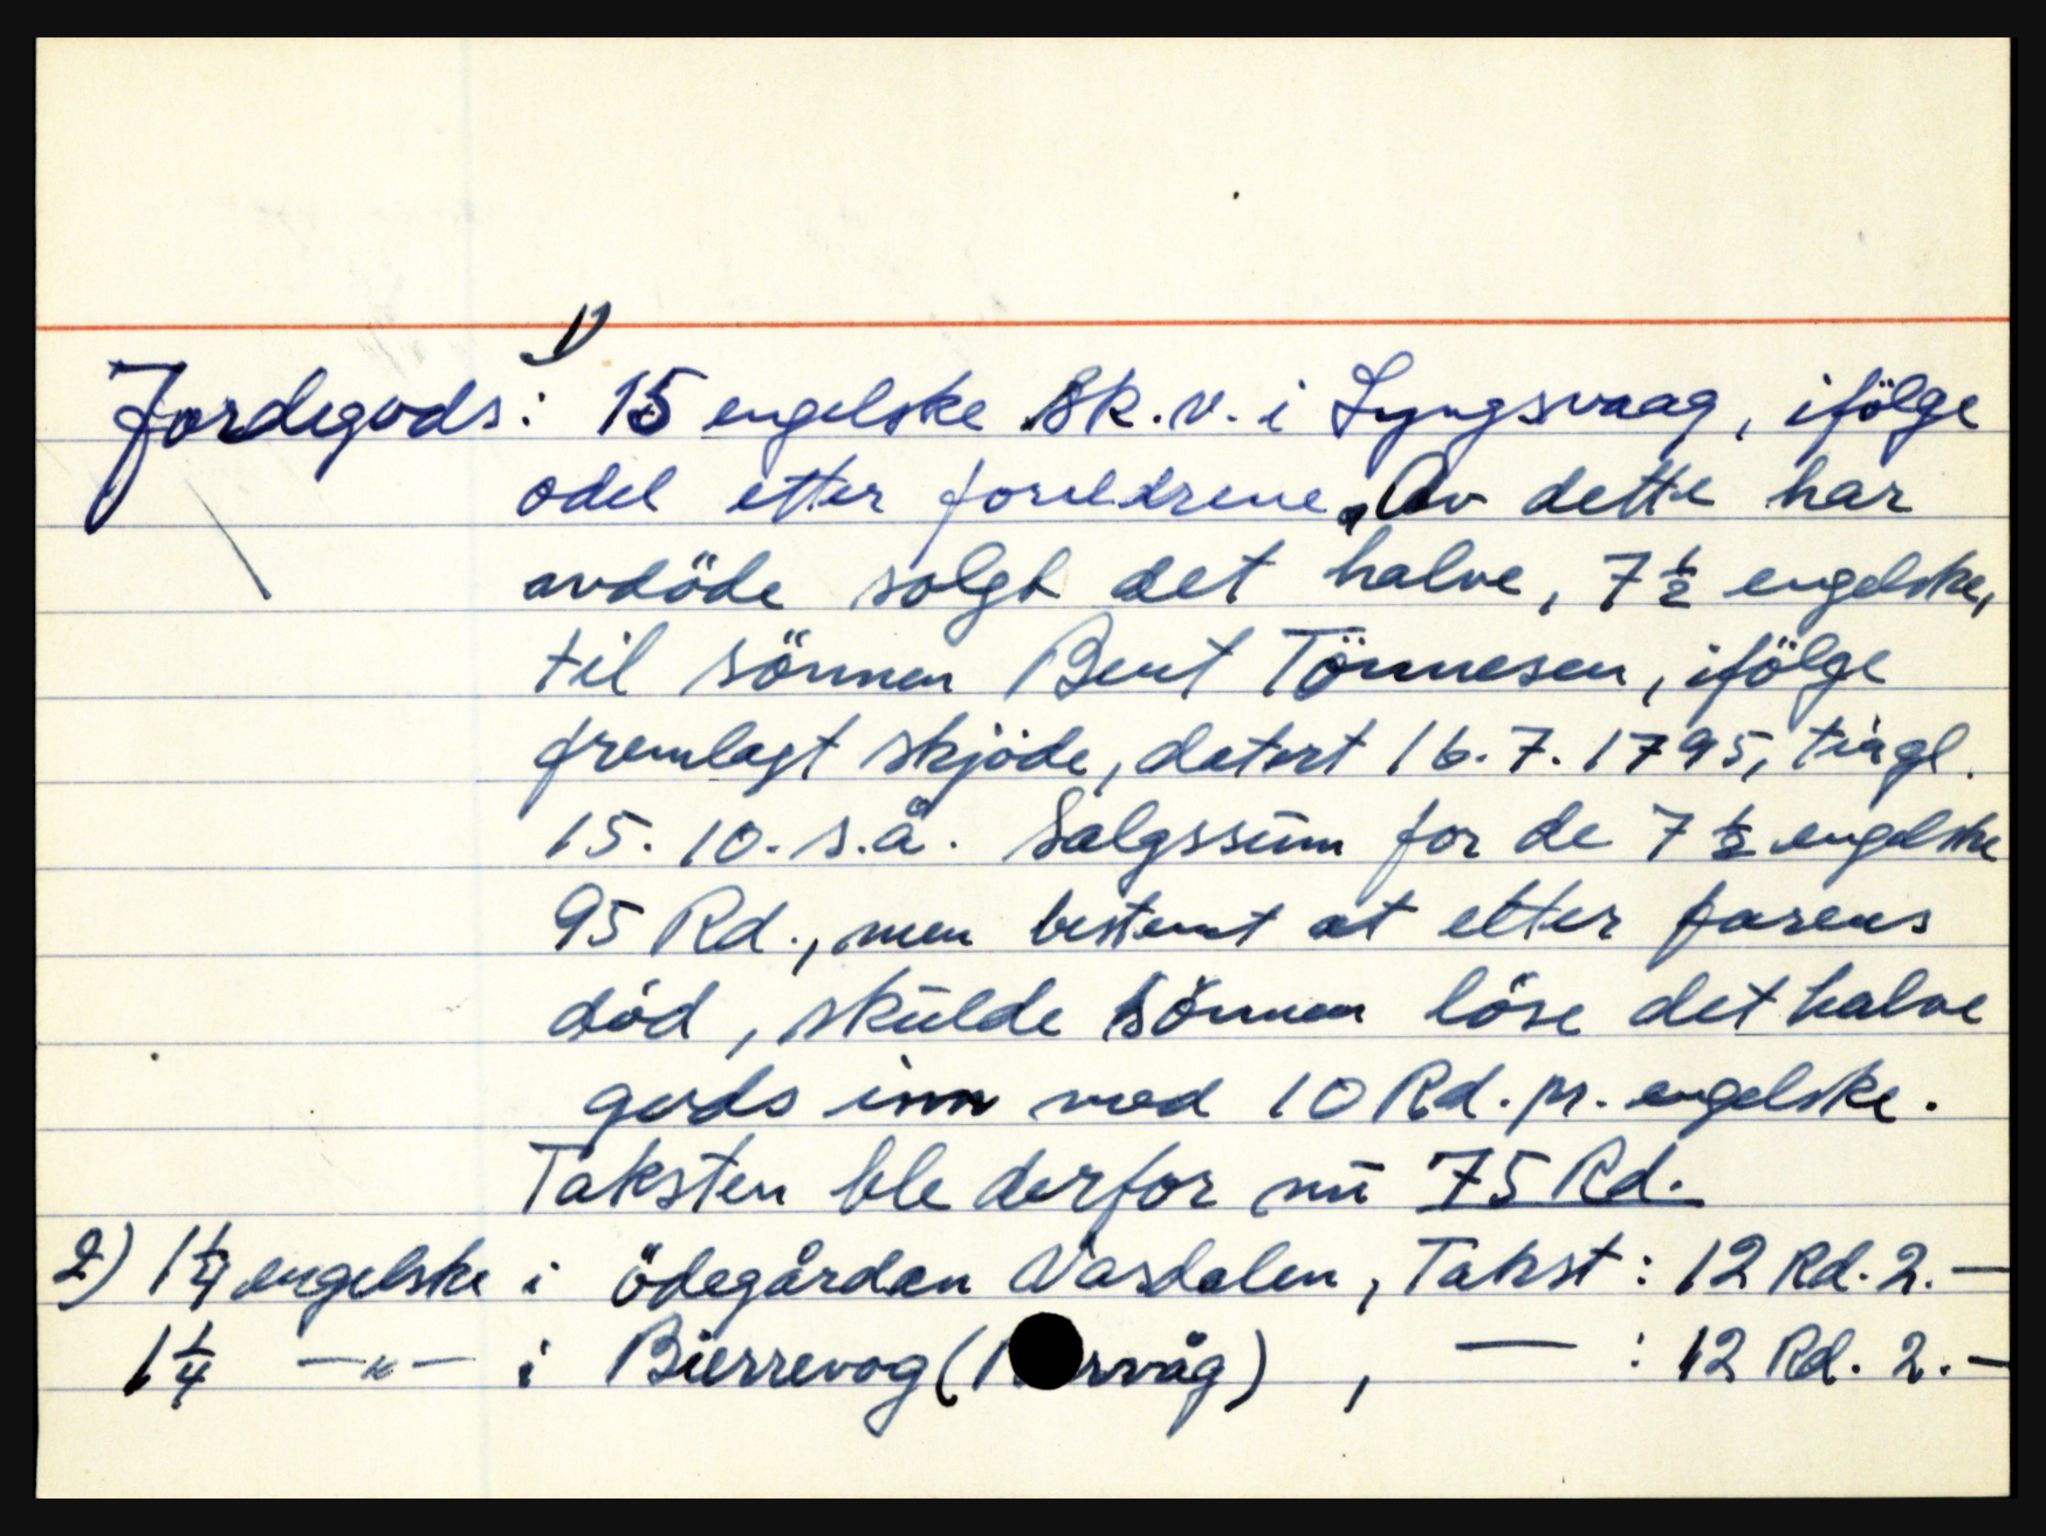 1)
Jordegods: 15 engelske Sk.v. i Lyngsvaag, ifölge
odel etter foreldrene. Av dette har
avdöde solgt det halve, 7 1/2 engelske,
til sönnen Bent Tönnesen, ifölge
fremlagt skjöde, datert 16.7.1795, tingl.
15.10.s.å. Salgssum for de 7 1/2 engelske
95 Rd., men bestemt at etter farens
död, skulde sönnen löse det halve
gods inn med 10 Rd. pr. engelske.
Taksten ble derfor nu 75 Rd.
2) 1 1/4 engelske i ödegården Vasdalen, Takst: 12 Rd. 2.—
1 1/4 —"— i Bierrevog ( rvåg) , — : 12 Rd. 2.—